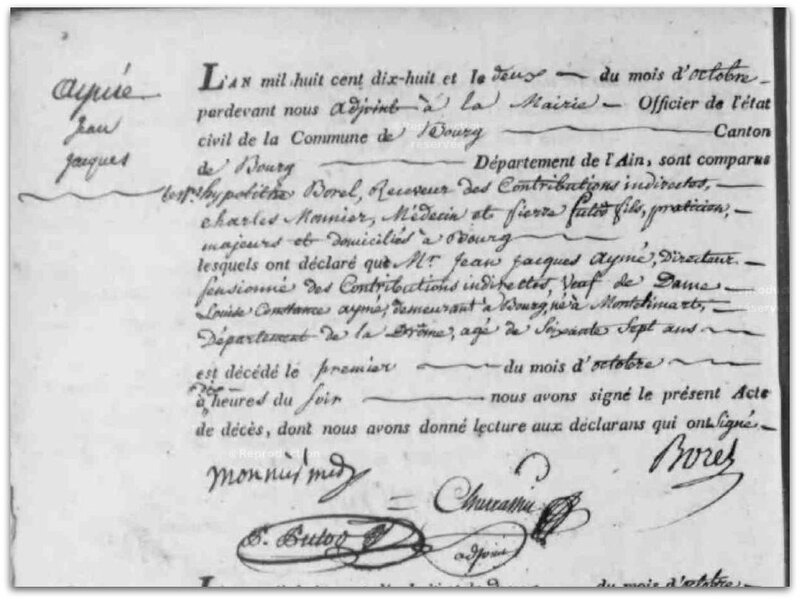 Aymé
Jean
Jacques
L'AN mil huit cent dix-huit et le deux du mois d'octobre
pardevant nous adjoint à la Mairie Officier de l'état
civil de la Commune de Bourg Canton
de Bourg Département de l'Ain, sont comparus
les Srs hypolithe Borel, Receveur des Contributions indirectes,
charles Monnier, Médecin et pierre Futod fils, praticien,
majeurs et domiciliés à Bourg
lesquels ont déclaré que Mr. Jean Jacques Aymé, Directeur
pensionné des Contributions indirectes, Veuf de Dame
Louise Constance aymé, demeurant à Bourg, né à Montelimart,
Département de la Drôme, agé de Soixante Sept ans
est décédé le premier du mois d'octobre
à dix heures du soir nous avons signé le présent Acte
de décès, dont nous avons donné lecture aux déclarans qui ont signé
monnier Borel
P. Futod
adjoint
L'AN du mois d'octobre
©Reproduction
réservée